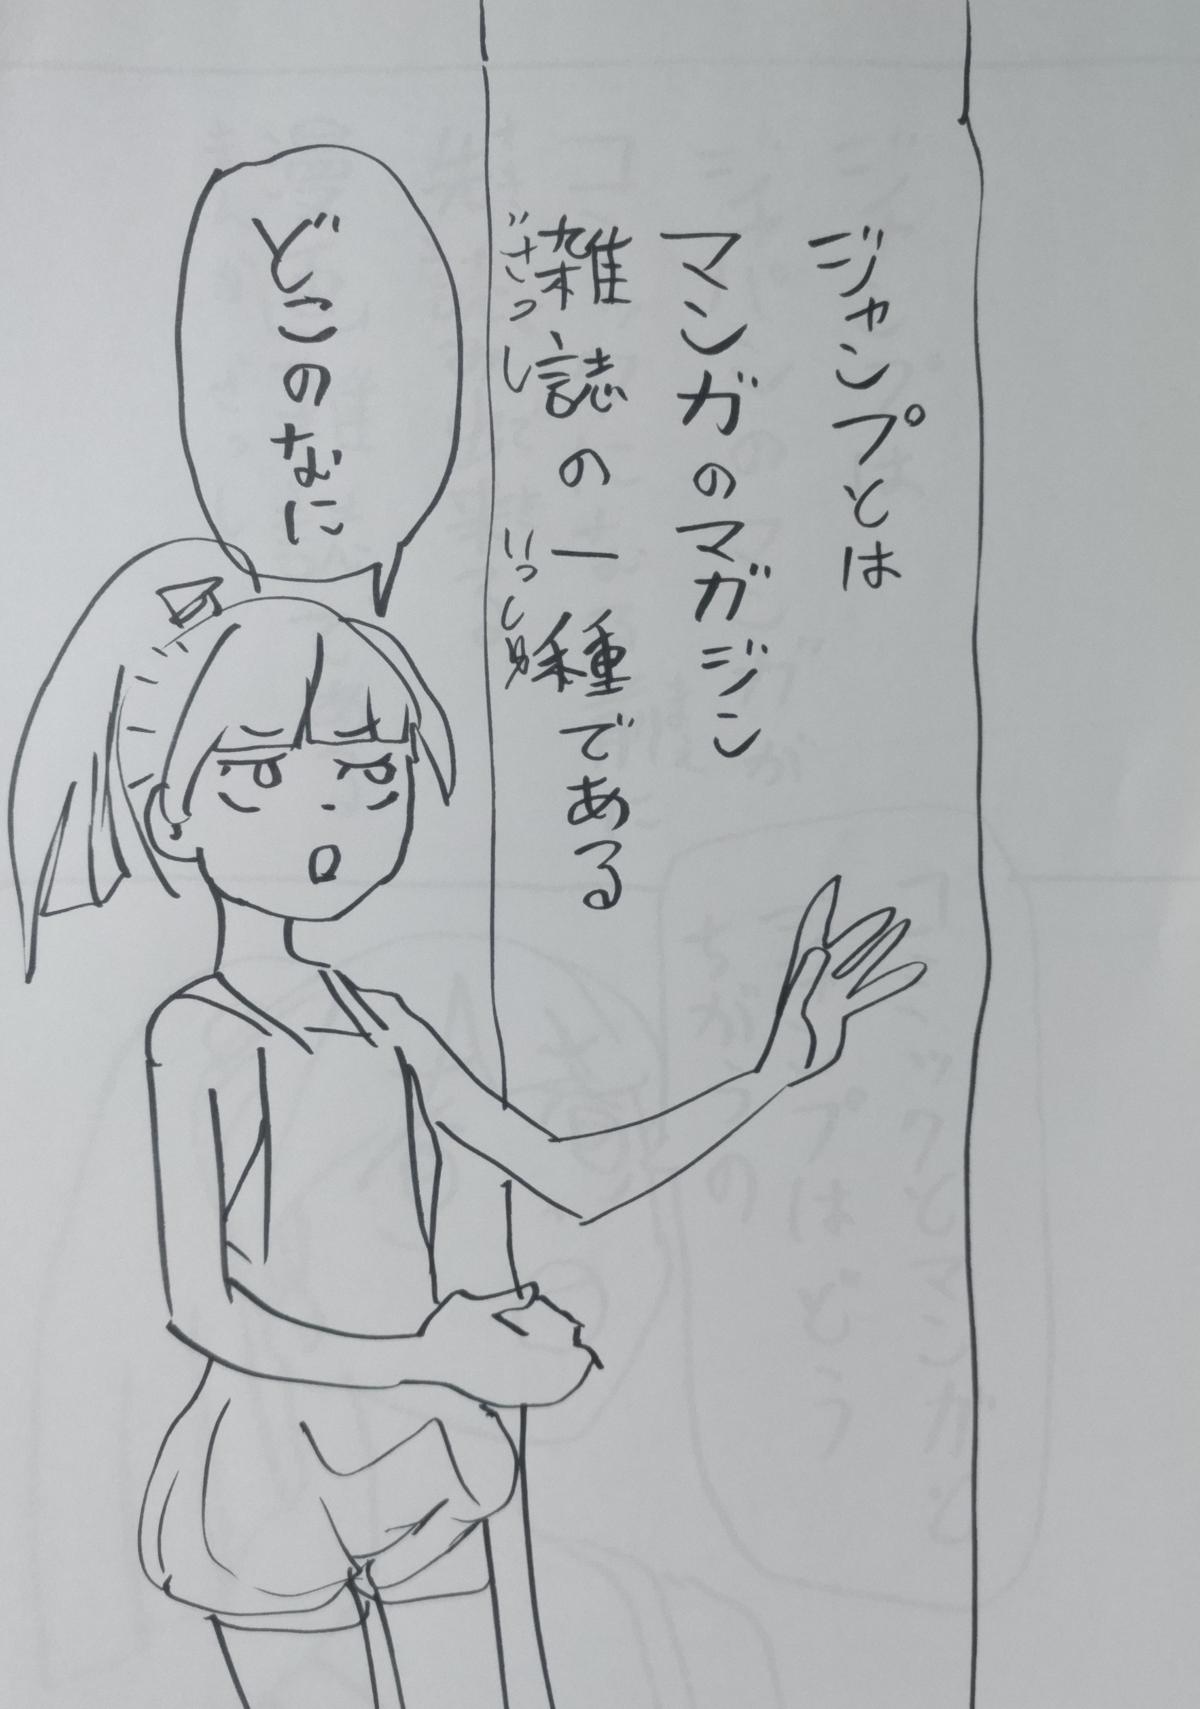 ジャンプとは
マンガのマガジン
雑誌の一種である
ざっし
いっしゅ
どこのなに